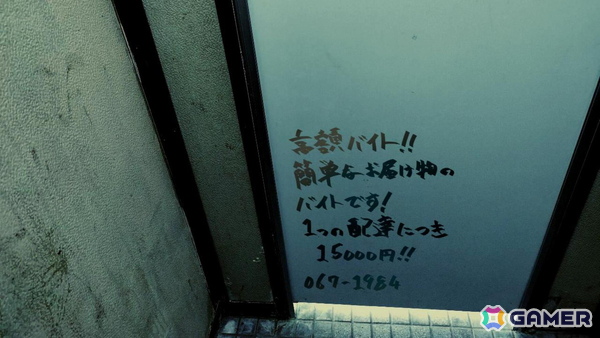 高額バイト!!
簡単なお届け物の
バイトです!
1つの配達につき
15000円!!
067-1984
GAMER